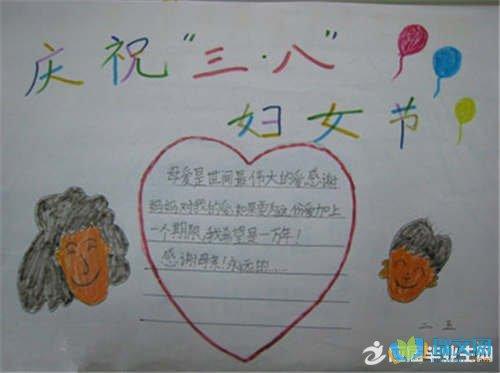 庆祝“三·八”
妇女节
母爱是世间最伟大的爱感谢
妈妈对我的爱,如果要为这份爱加上
一个期限,我希望是一万年!
感谢母亲!永远的......
二 五
毕业生网